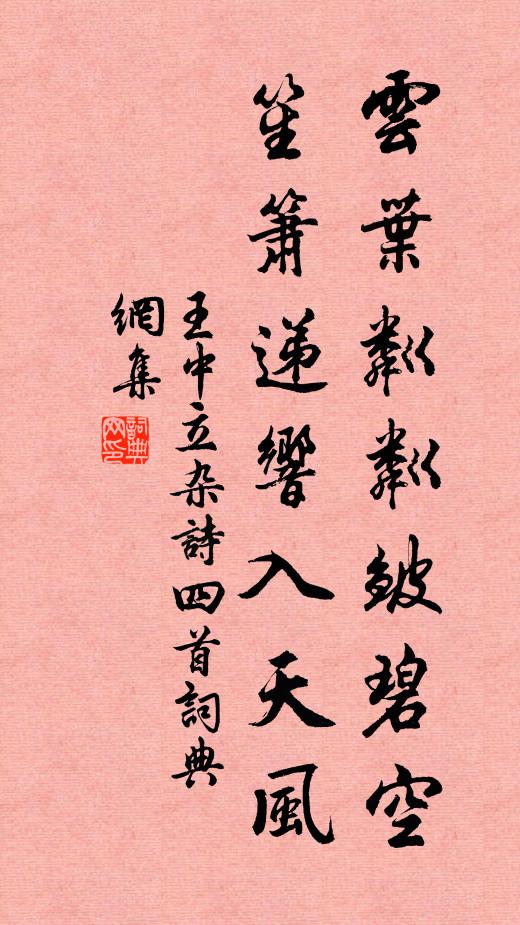 雲葉粼粼皴碧空
笙簫递響入天風
王中立杂詩四首詞典
網集
詞典网印